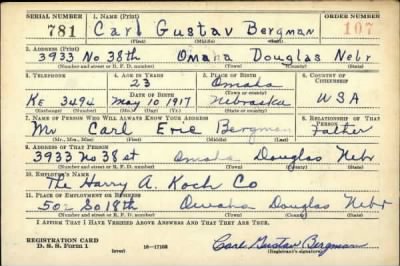 SERIAL NUMBER 1. NAME (Print) ORDER NUMBER
781 Carl Gustav Bergman 107
(First) (Middle) (Last)
2. ADDRESS (Print)
3933 No 38th Omaha Douglas Nebr
(Number and street or R. F. D. number) (Town) (County) (State)
3. TELEPHONE 4. AGE IN YEARS 5. PLACE OF BIRTH 6. COUNTRY OF CITIZENSHIP
23 Omaha
(Town or county)
DATE OF BIRTH
Ke 3494 May 10 1917 Nebraska USA
(Exchange) (Number) (Mo.) (Day) (Yr.) (State or country)
7. NAME OF PERSON WHO WILL ALWAYS KNOW YOUR ADDRESS 8. RELATIONSHIP OF THAT PERSON
Mr Carl Eric Bergman Father
(Mr., Mrs., Miss) (First) (Middle) (Last)
9. ADDRESS OF THAT PERSON
3933 No 38 st Omaha Douglas Nebr
(Number and street or R. F. D. number) (Town) (County) (State)
10. EMPLOYER'S NAME
The Harry A. Koch Co
11. PLACE OF EMPLOYMENT OR BUSINESS
502 So 18th Omaha Douglas Nebr
(Number and street or R. F. D. number) (Town) (County) (State)
I AFFIRM THAT I HAVE VERIFIED ABOVE ANSWERS AND THAT THEY ARE TRUE.
REGISTRATION CARD
D. S. S. Form 1 (over) 16-17105 Carl Gustav Bergman
(Registrant's signature)